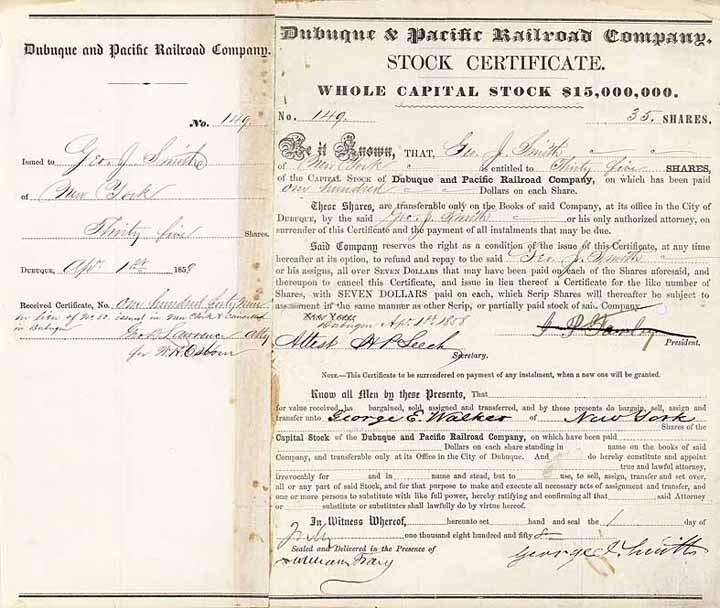 Dubuque and Pacific Railroad Company.
No. 149
Issued to Geo. J. Smith
of New York
Thirty five Shares.
Dubuque, Apr. 1st 1858
Received Certificate, No. one hundred forty nine
in lieu of No. issued in New York &
in Dubuque
Geo. B. Lawrence atty
for W. H. Osborn
Dubuque & Pacific Railroad Company.
STOCK CERTIFICATE.
WHOLE CAPITAL STOCK $15,000,000.
No. 149 35 SHARES.
Be it Known, THAT, Geo. J. Smith
of New York is entitled to Thirty five SHARES,
of the Capital Stock of Dubuque and Pacific Railroad Company, on which has been paid
one hundred Dollars on each Share.
These Shares, are transferable only on the Books of said Company, at its office in the City of
Dubuque, by the said Geo. J. Smith or his only authorized attorney, on
surrender of this Certificate and the payment of all instalments that may be due.
Said Company reserves the right as a condition of the issue of this Certificate, at any time
hereafter at its option, to refund or repay to the said Geo. J. Smith
or his assigns, all over Seven Dollars that may have been paid on each of the Shares aforesaid, and
thereupon to cancel this Certificate, and issue in lieu thereof a Certificate for the like number of
Shares, with SEVEN DOLLARS paid on each, which Scrip Shares will thereafter be subject to
assessment in the same manner as other Scrip, or partially paid stock of said Company
New York,
Dubuque Apr. 1st 1858
J. P. Farley
President.
Attest H P Leech
Secretary.
Note.—This Certificate to be surrendered on payment of any instalment, when a new one will be granted.
Know all Men by these Presents, That
for value received, ha bargained, sold, assigned and transferred, and by these presents do bargain, sell, assign and
transfer unto George E. Walker of New York
Shares of the
Capital Stock of the Dubuque and Pacific Railroad Company, on which have been paid
Dollars on each share standing in name on the books of said
Company, and transferable only at its Office in the City of Dubuque. And do hereby constitute and appoint
true and lawful attorney,
irrevocably for and in name and stead, but to use, to sell, assign, transfer and set over,
all or any part of said Stock, and for that purpose to make and execute all necessary acts of assignment and transfer, and
one or more persons to substitute with like full power, hereby ratifying and confirming all that said Attorney
or substitute or substitutes shall lawfully do by virtue hereof.
In Witness Whereof, hereunto set hand and seal the 1 day of
July one thousand eight hundred and fifty 8
Sealed and Delivered in the Presence of
George J. Smith
William